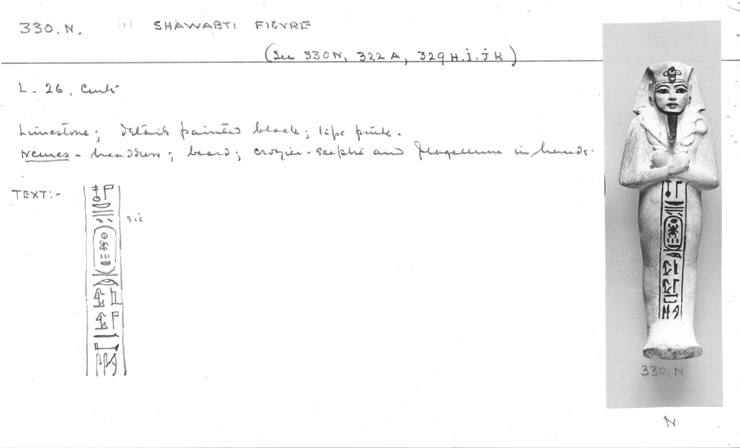 330.N. (1) SHAWABTI FIGVRE
(See 330N, 322A, 329H.j.jk)
L. 26, Cents
Limestone; details painted black; lips pink.
Nemes-headdress; beard; crozier-sceptre and flagellum in hands.
TEXT:-
sic
330,N
N